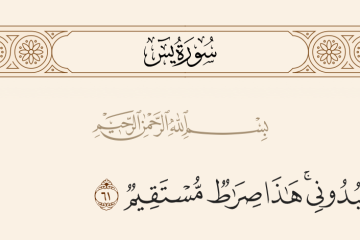 سُورَةُ يسٓ
بِسْمِ ٱللَّهِ ٱلرَّحْمَٰنِ ٱلرَّحِيمِ
بُدُونِىۚ هَٰذَا صِرَٰطٌ مُّسْتَقِيمٌ ٦١